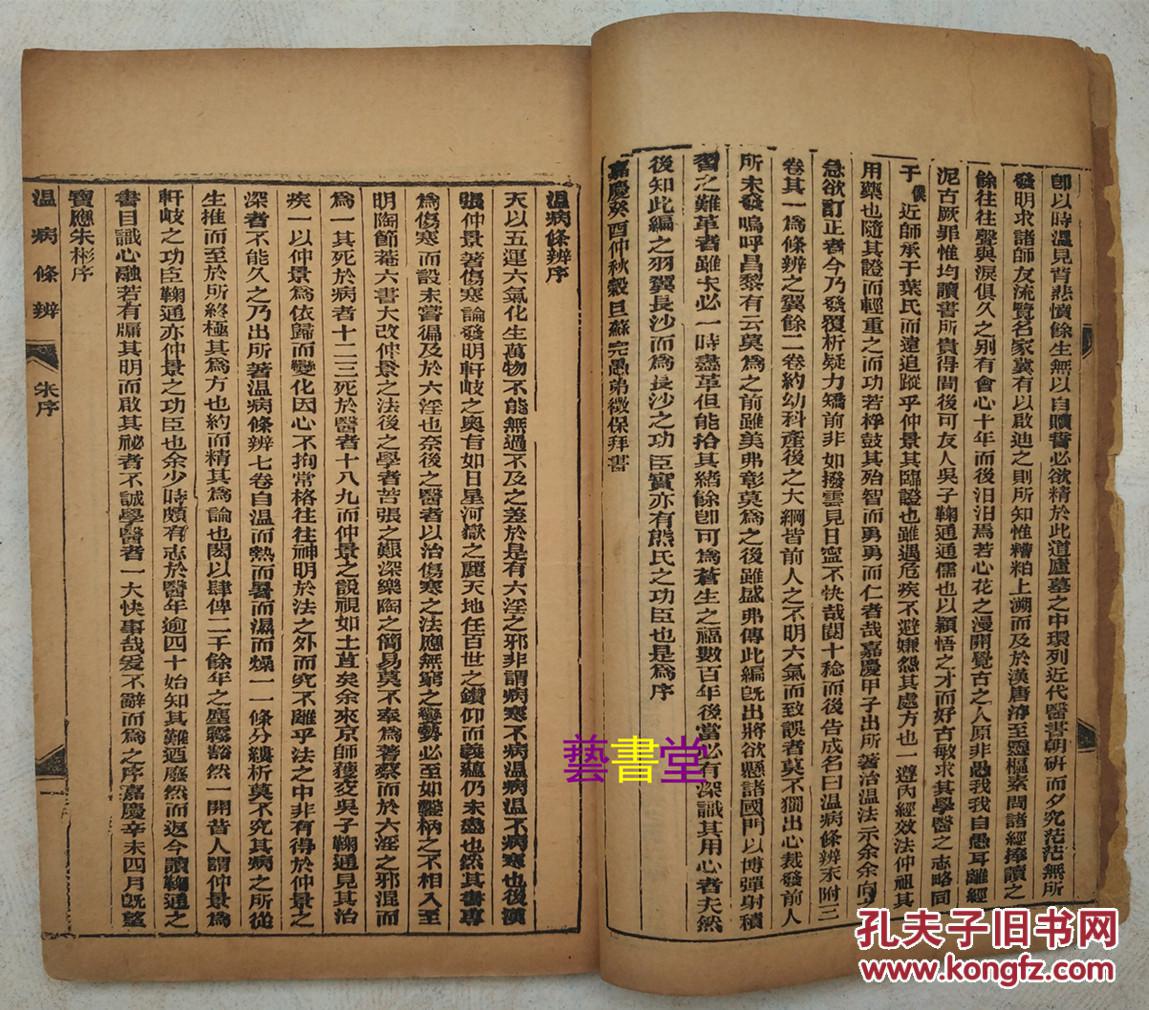 卽以時溫見背悲憤餘生無以自贖誓必欲精於此道廬墓之中環列近代醫書朝硏而夕究茫茫無所
發明求諸師友流覽名家冀有以啟迪之則所知惟糟粕上溯而及於漢唐洊至靈樞素問諸經捧讀之
餘往往聲與淚俱久之别有會心十年而後汨汨焉若心花之漫開覺古之人原非愚我我自愚耳離經
泥古厥罪惟均讀書所貴得間後可友人吳子鞠通通儒也以穎悟之才而好古敏求其學醫之志略同
于僕近師承于葉氏而遠追蹤乎仲景其臨證也雖遇危疾不避嫌怨其處方也一遵內經效法仲祖其
用藥也隨其證而輕重之而功若桴鼓其殆智而勇勇而仁者哉嘉慶甲子出所著治溫法示余余向之
急欲訂正者今乃發覆析疑力矯前非如撥雲見日寧不快哉閱十稔而後告成名曰温病條辨末附三
卷其一爲條辨之翼餘二卷約幼科產後之大綱皆前人之不明六氣而致誤者莫不獨出心裁發前人
所未發嗚呼昌黎有云莫爲之前雖美弗彰莫爲之後雖盛弗傳此編旣出將欲懸諸國門以博彈射積
習之難革者雖未必一時盡革但能拾其緒餘卽可爲蒼生之福數百年後當必有深識其用心者夫然
後知此編之羽翼長沙而爲長沙之功臣實亦有熊氏之功臣也是爲序
嘉慶癸酉仲秋穀旦蘇完愚弟徵保拜書
温病條辨序
天以五運六氣化生萬物不能無過不及之差於是有六淫之邪非謂病寒不病温病温不病寒也後漢
張仲景著傷寒論發明軒岐之奥旨如日星河嶽之麗天地任百世之鑽仰而義蘊仍未盡也然其書專
爲傷寒而設未嘗徧及於六淫也奈後之醫者以治傷寒之法應無窮之變勢必至如鑿枘之不相入至
明陶節菴六書大改仲景之法後之學者苦張之艱深樂陶之簡易莫不奉爲蓍蔡而於六淫之邪混而
爲一其死於病者十二三死於醫者十八九而仲景之說視如土苴矣余來京師獲交吳子鞠通見其治
疾一以仲景爲依歸而變化因心不拘常格往往神明於法之外而究不離乎法之中非有得於仲景之
深者不能久之乃出所著温病條辨七卷自温而熱而暑而濕而燥一一條分縷析莫不究其病之所從
生推而至於所終極其爲方也約而精其爲論也閎以肆俾二千餘年之塵霧豁然一開昔人謂仲景爲
軒岐之功臣鞠通亦仲景之功臣也余少時頗有志於醫年逾四十始知其難迺廢然而返今讀鞠通之
書目識心融若有牖其明而啟其祕者不誠學醫者一大快事哉爰不辭而爲之序嘉慶辛未四月旣望
寶應朱彬序
温病條辨 朱序
藝書堂
孔夫子旧书网
www.kongfz.com